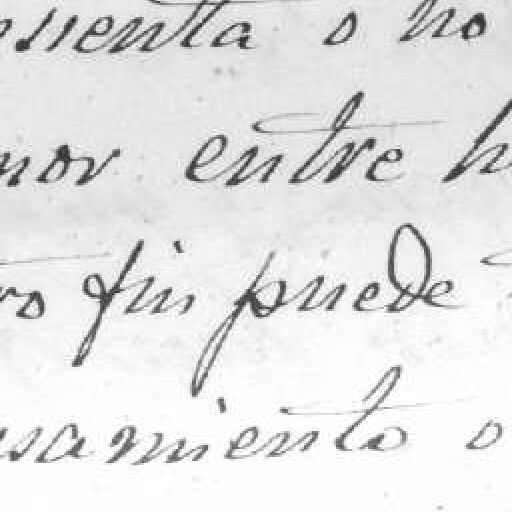 esienta o no
mor entre h
ro fin puede
nsamiento o